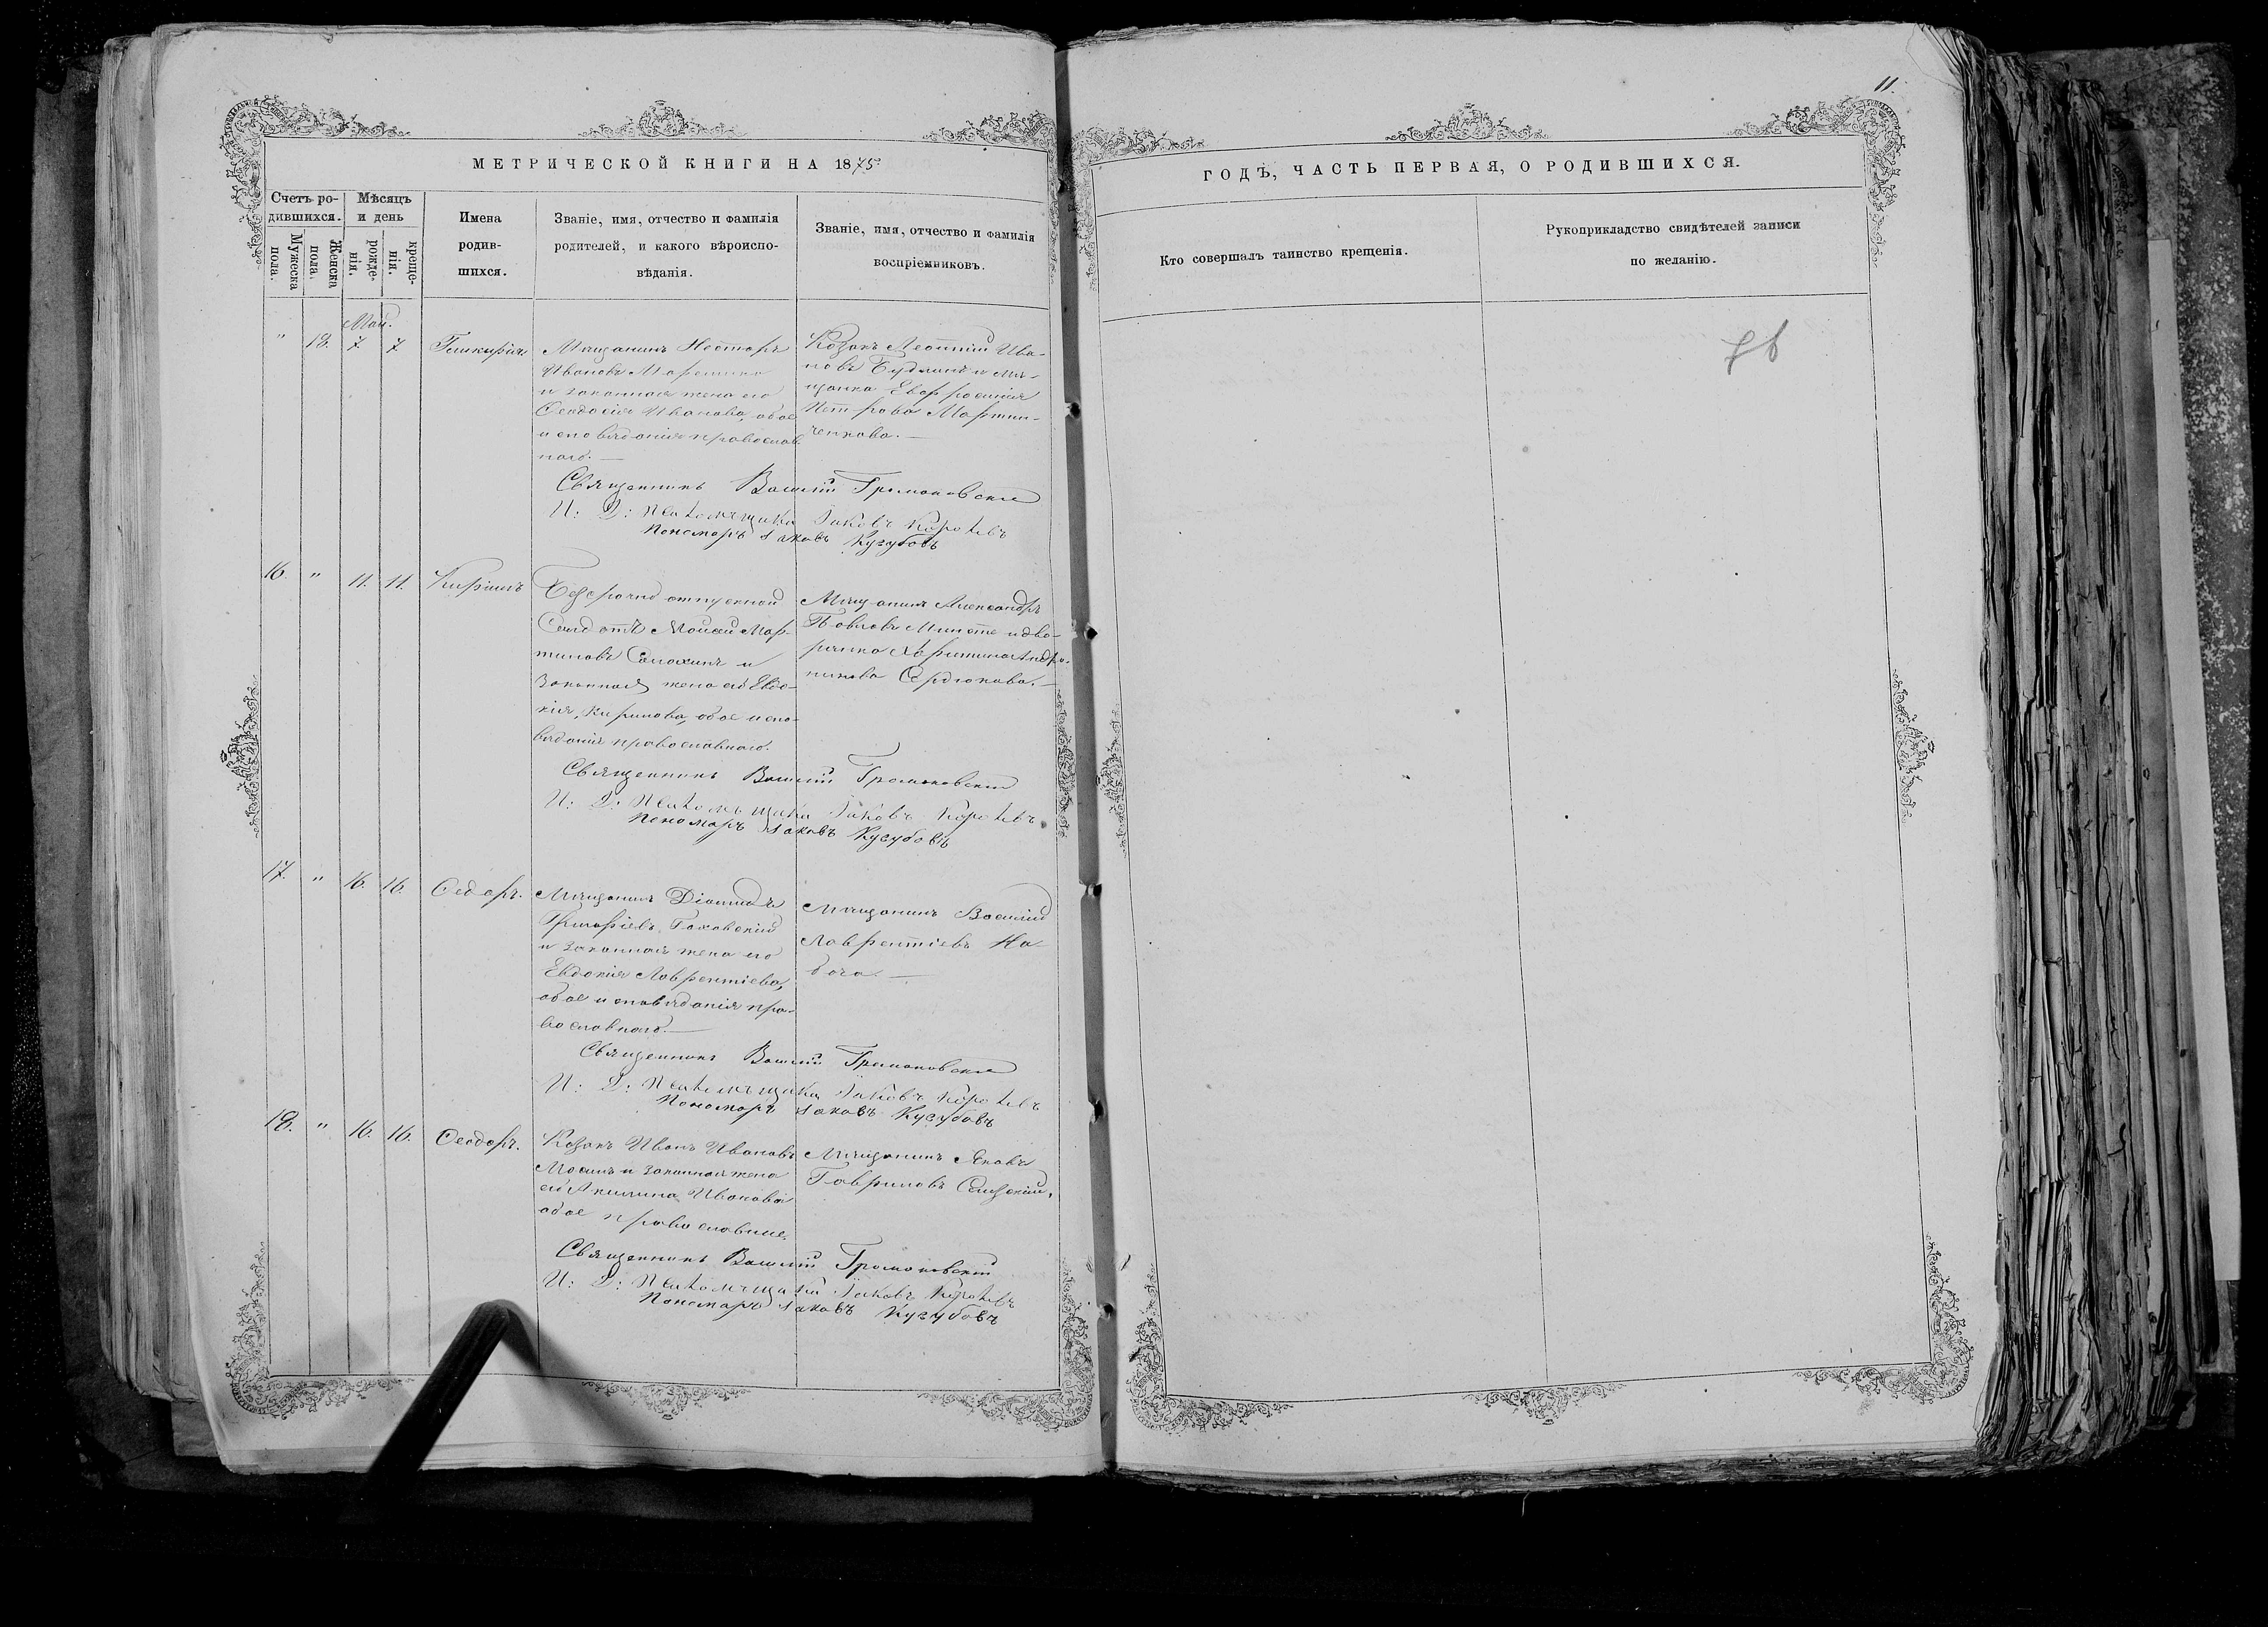 11.
МЕТРИЧЕСКОЙ КНИГИ НА 1875
ГОДЪ, ЧАСТЬ ПЕРВАЯ, О РОДИВШИХСЯ.
Счетъ ро-
дившихся.
Мужеска
пола.
Женска
пола.
Мѣсяцъ
и день
рожде-
нія.
креще-
нія.
Имена
родив-
шихся.
Званіе, имя, отчество и фамилія
родителей, и какого вѣроиспо-
вѣданія.
Званіе, имя, отчество и фамилія
воспріемниковъ.
Кто совершалъ таинство крещенія.
Рукоприкладство свидѣтелей записи
по желанію.
Май.
" 18. 7. 7
Мѣщанинъ Несторъ
Ивановъ
и законная жена его
Ѳеодосія Иванова, обое
исповѣданія православ-
наго. —
Козакъ Леонтій Ива-
новъ и мѣ-
щанка Евфросинія
Петрова Мартин-
ченкова. —
Священникъ Василій Громаковскій
И: Д: Псаломщика Іаковъ
Пономарь Іаковъ Кусубовъ
16. " 11. 11. Кирилъ
Безсрочно отпускной
Солдатъ Моисей Мар-
тиновъ Солохинъ и
законная жена его Евдо-
кія Кирилова, обое испо-
вѣданія православнаго.
Мѣщанинъ Александръ
Павловъ и дво-
рянка Харитина Андро-
никова Сердюкова. —
Священникъ Василій Громаковскій
И: Д: Псаломщика Іаковъ
Пономарь Іаковъ Кусубовъ
17. " 16. 16. Ѳеодоръ.
Мѣщанинъ Діомидъ
Григоріевъ
и законная жена его
Евдокія Лаврентіева,
обое исповѣданія пра-
вославнаго. —
Мѣщанинъ Василій
Лаврентіевъ На-
бока. —
Священникъ Василій Громаковскій
И: Д: Псаломщика Іаковъ
Пономарь Іаковъ Кусубовъ
18. " 16. 16. Ѳеодоръ.
Козакъ Иванъ Ивановъ
и законная жена
его Акилина Иванова
обое православные.
Мѣщанинъ Яковъ
Гавриловъ
Священникъ Василій Громаковскій
И: Д: Псаломщика Іаковъ
Пономарь Іаковъ Кусубовъ